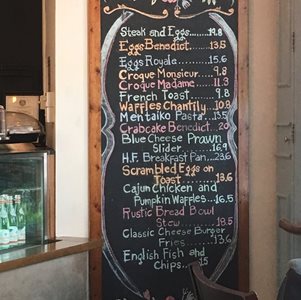 Steak and Eggs......19.8
Eggs Benedict....13.5
Eggs Royale......15.6
Croque Monsieur.. 9.8
Croque Madame.... 11.3
French Toast...... 9.8
Waffles Chantily.. 10.8
Mentaiko Pasta.. 13.5
Crabcake Benedict..20
Blue Cheese Prawn
Slider......16.9
H.F. Breakfast Pan..23.6
Scrambled Eggs on
Toast.....13.6
Cajun Chicken and
Pumpkin Waffles.. 16.5
Rustic Bread Bowl
Stew......18.5
Classic Cheese Burger
Fries.....13.6
English Fish and
Chips...15